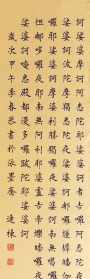 娑婆摩訶阿悉陀夜娑婆訶者吉囉阿悉陀夜
娑婆訶波陀摩羯悉陀夜娑婆訶那囉謹墀皤伽
囉耶娑婆訶摩婆利勝羯囉夜娑婆訶南無喝囉
怛那哆囉夜耶南無阿利耶婆盧吉帝爍皤囉夜
娑婆訶唵悉殿都漫多囉跋陀耶娑婆訶
歲次甲午季春恭書於依墨齋 連棟